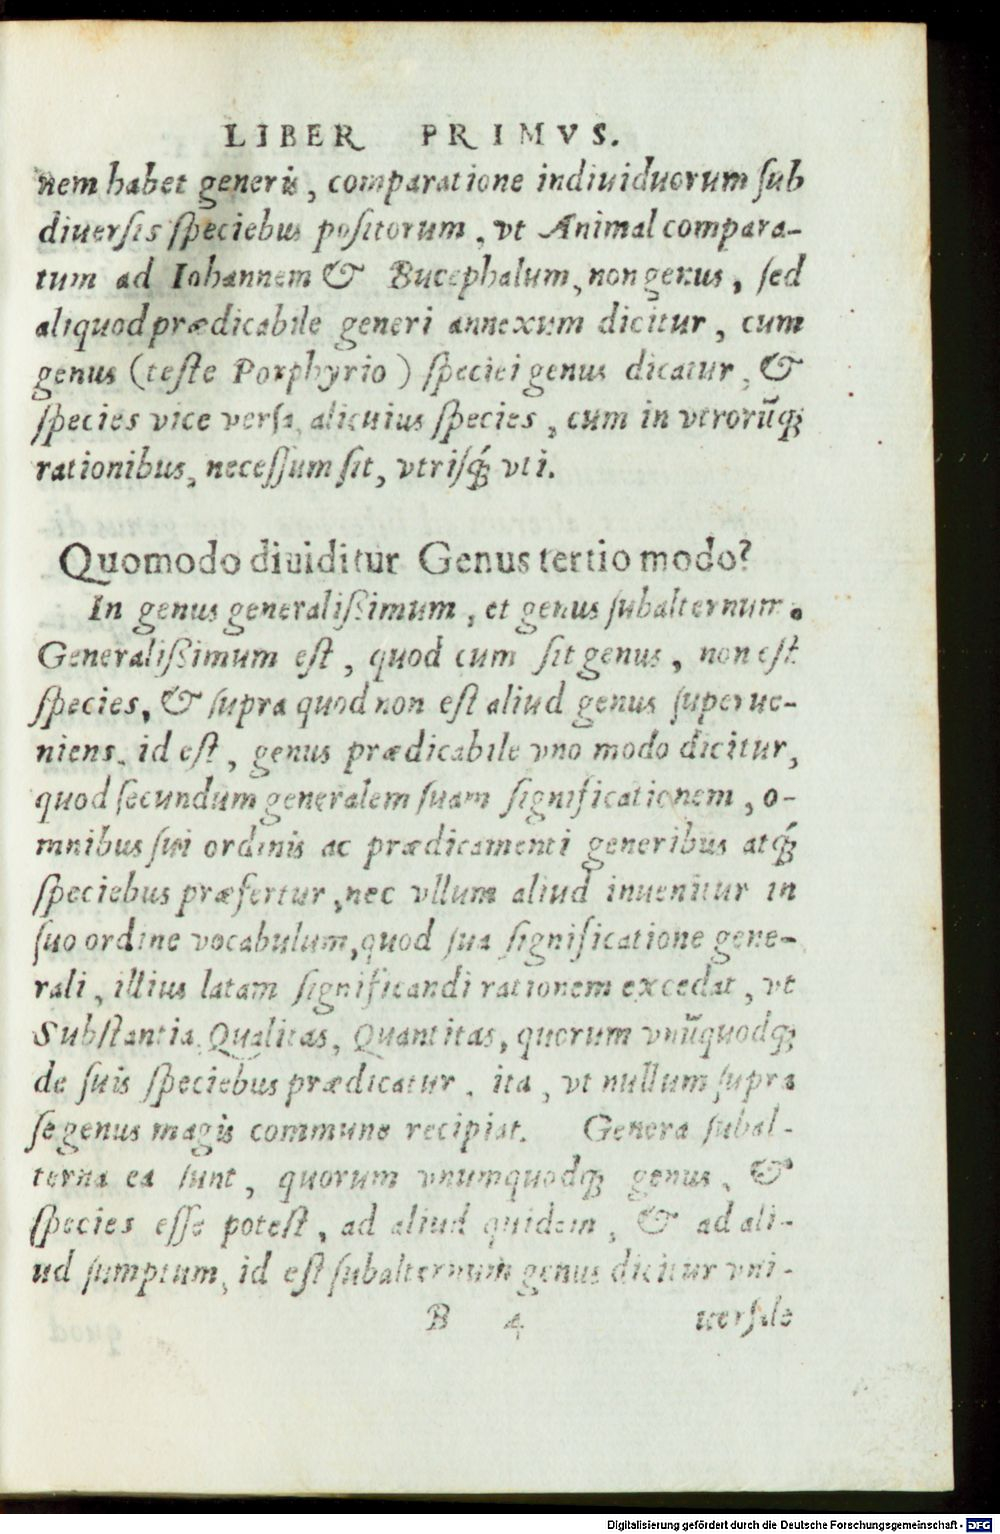 LIBER PRIMVS.
nem habet generis, comparatione indiuiduorum ſub
diuerſis ſpeciebus poſitorum, vt Animal compara-
tum ad Iohannem & Bucephalum, non genus, ſed
aliquod prædicabile generi annexum dicitur, cum
genus (teſte Porphyrio) ſpeciei genus dicatur, &
ſpecies vice verſa, alicuius ſpecies, cum in vtrorũq́;
rationibus, neceſſum ſit, vtriſq́; vti.
Quomodo diuiditur Genus tertio modo?
In genus generaliſsimum, et genus ſubalternum.
Generaliſsimum eſt, quod cum ſit genus, non eſt
ſpecies, & ſupra quod non eſt aliud genus ſuperue-
niens, id eſt, genus prædicabile vno modo dicitur,
quod ſecundum generalem ſuam ſignificationem, o-
mnibus ſui ordinis ac prædicamenti generibus atq́;
ſpeciebus præfertur, nec vllum aliud inuenitur in
ſuo ordine vocabulum, quod ſua ſignificatione gene-
rali, illius latam ſignificandi rationem excedat, vt
Subſtantia, Qualitas, Quantitas, quorum vnũquodq;
de ſuis ſpeciebus prædicatur, ita, vt nullum ſupra
ſe genus magis commune recipiat. Genera ſubal-
terna ea ſunt, quorum vnumquodq; genus, &
ſpecies eſſe poteſt, ad aliud quidem, & ad ali-
ud ſumptum, id eſt ſubalternum genus dicitur vni-
B 4 uerſale
Digitalisierung gefördert durch die Deutsche Forschungsgemeinschaft - DFG